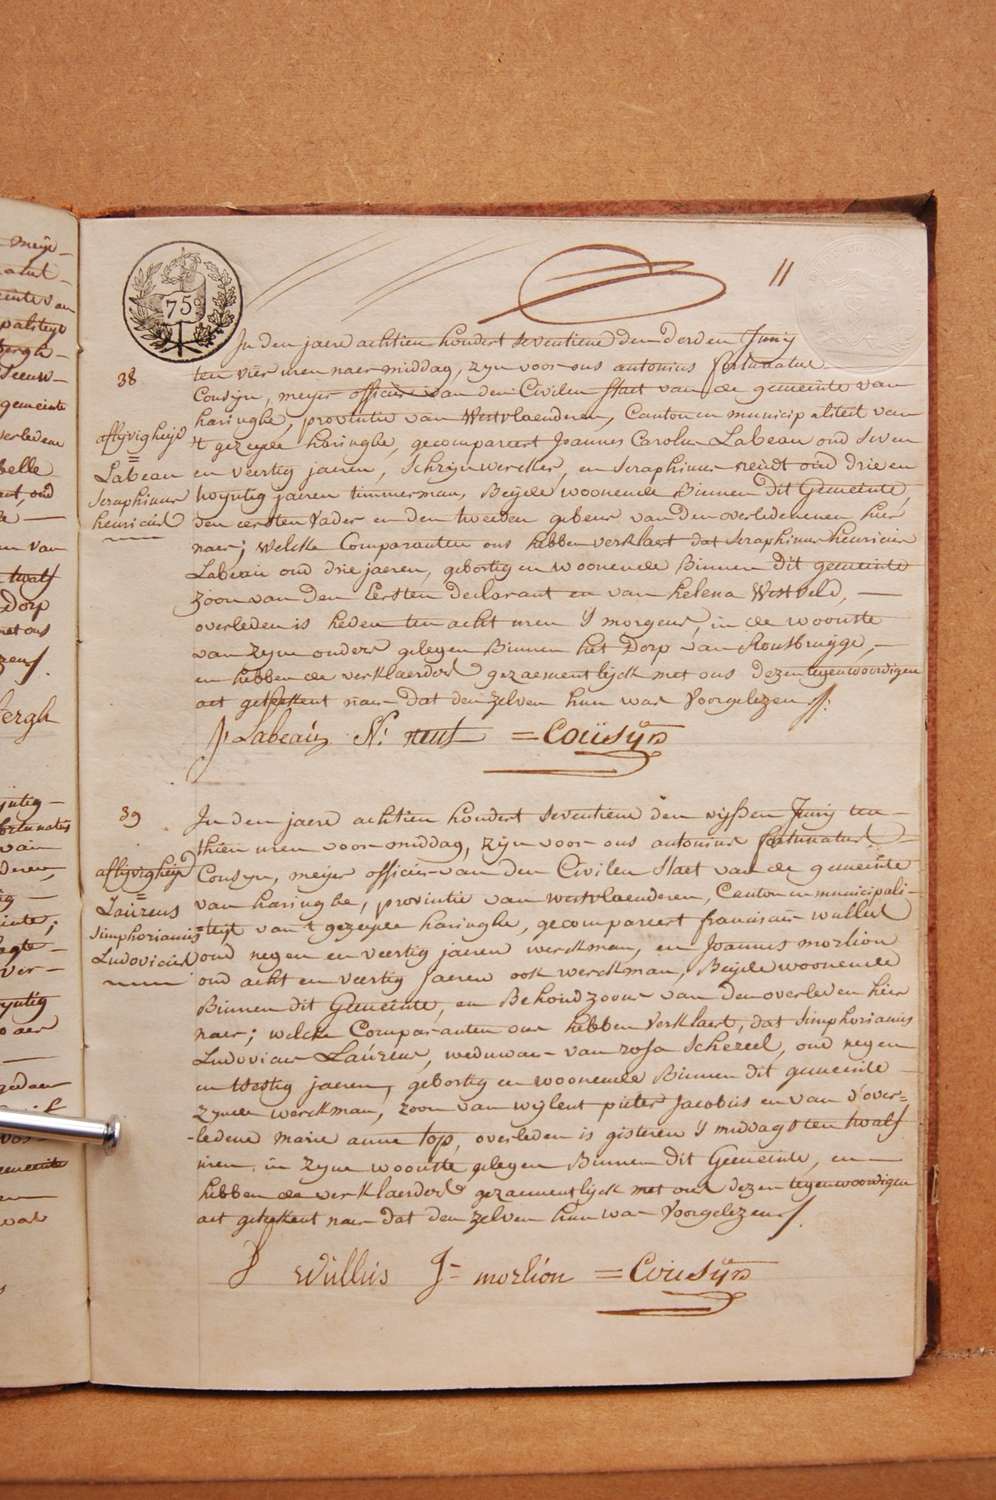 11
75 c
38
aflijvigheijd
Labeau
Seraphinus
henricus
In den jaere achtien hondert seventiene den derden Junij
ten vier uren naer middag, zijn voor ons antonius fortunatus
Cousyn, meyer officier van den Civilen Staet van de gemeente van
haringhe, provintie van Westvlaenderen, Canton en municipaliteit van
't gezeyde haringhe, gecompareert Joannes Carolus Labeau oud seven
en veertig jaeren, Schrijnwercker, en Seraphinus neudt oud drie en
twyntig jaeren timmerman, Beijde woonende Binnen dit Gemeente,
den eersten Vader en den tweeden gebeur van den overledenen hier
naer; welcke Comparanten ons hebben verklaert dat Seraphinus henricus
Labeau oud drie jaeren, gebortig en woonende Binnen dit gemeente
zoon van den Eersten declarant en van helena Westveld, —
overleden is heden ten acht uren 's morgens, in de wooste
van zyne ouders gelegen Binnen het Dorp van Rousbrugge, —
en hebben de verklaerders gezaementlijck met ons dezen tegenwoordigen
act geteekent naer dat den zelven hun was Voorgelezen
J: Labeau S: neut = Cousyn
39
afleyvigheyd
Laureus
Simphorianus
Ludovicus
In den jaere achtien hondert seventiene den vijfden Junij ten
thien uren voor middag, zijn voor ons antonius fortunatus
Cousyn, meyer officier van den Civilen Staet van de gemeente
van haringhe, provintie van westvlaenderen, Canton en municipali-
=teijt van 't gezeyde haringhe, gecompareert franciscus wullus
oud negen en veertig jaeren werckman, en Joannes morlion
oud acht en veertig Jaeren ook werckman, Beijde woonende
Binnen dit Gemeente, en Behoudzoons van den overleden hier
naer; welcke Comparanten ons hebben Verklaert, dat Simphorianus
Ludovicus Laureus, weduwaer van rosa Schezeel, oud negen
en tsestig jaeren, gebortig en woonende Binnen dit gemeente
zynde werckman, zoon van wijlent pieter Jacobus en van d'over=
-ledene marie anne top, overleden is gisteren 's middags ten twalf
uren in zyne wooste gelegen Binnen dit Gemeente, en —
hebben de verklaerders gezaementlijck met ons dezen tegenwoordigen
act geteekent naer dat den zelven hun was Voorgelezen
f wullus J= morlion = Cousyn